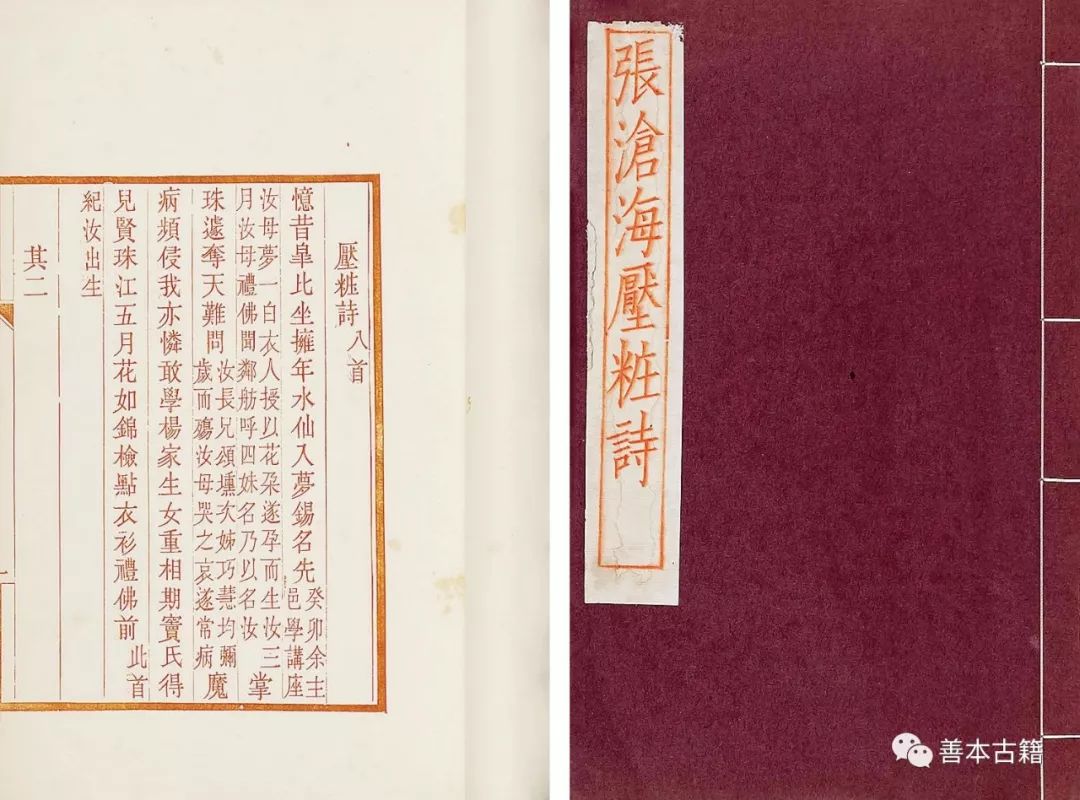 張滄海壓粧詩
壓粧詩八首
憶昔臯比坐擁年水仙入夢錫名先
癸卯余主
邑學講座
汝母夢一白衣人授以花朶遂孕而生汝三
月汝母禮佛聞鄰舫呼四妹名乃以名汝
掌
珠遽奪天難問
汝長兄頌壎次姊巧慧均彌
歲而殤汝母哭之哀遂常病
魔
病頻侵我亦憐敢學楊家生女重相期竇氏得
兒賢珠江五月花如錦檢點衣衫禮佛前
此首
紀汝出生
其二
善本古籍